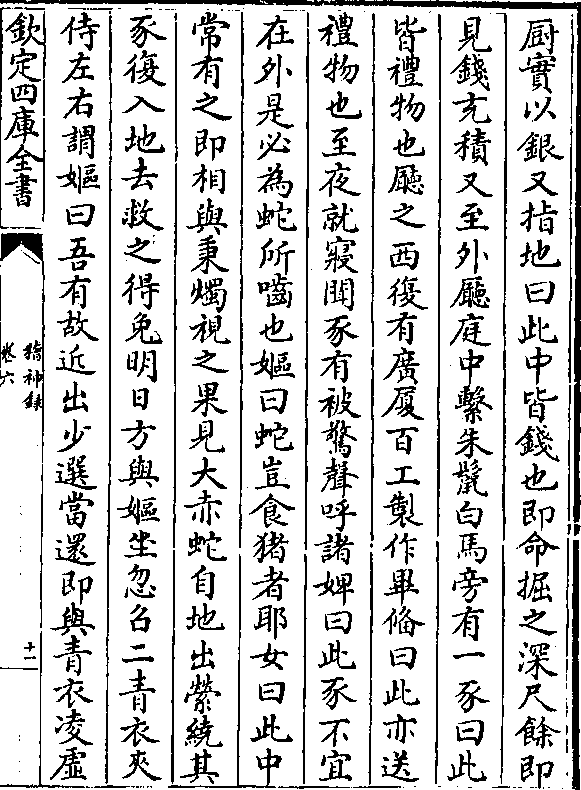 厨實以銀又指地曰此中皆錢也即命掘之深尺餘即
見錢充積又至外廳庭中繫朱鬛白馬旁有一豕曰此
皆禮物也廳之西復有廣厦百工製作畢備曰此亦送
禮物也至夜就寢聞豕有被驚聲呼諸婢曰此豕不宜
在外是必為蛇所嚙也嫗曰蛇豈食猪者耶女曰此中
常有之即相與秉燭視之果見大赤蛇自地出縈繞其
豕復入地去救之得免明日方與嫗坐忽召二青衣夾
侍左右謂嫗曰吾有故近出少選當還即與青衣凌虛
欽定四庫全書
稽神錄
卷六
十一